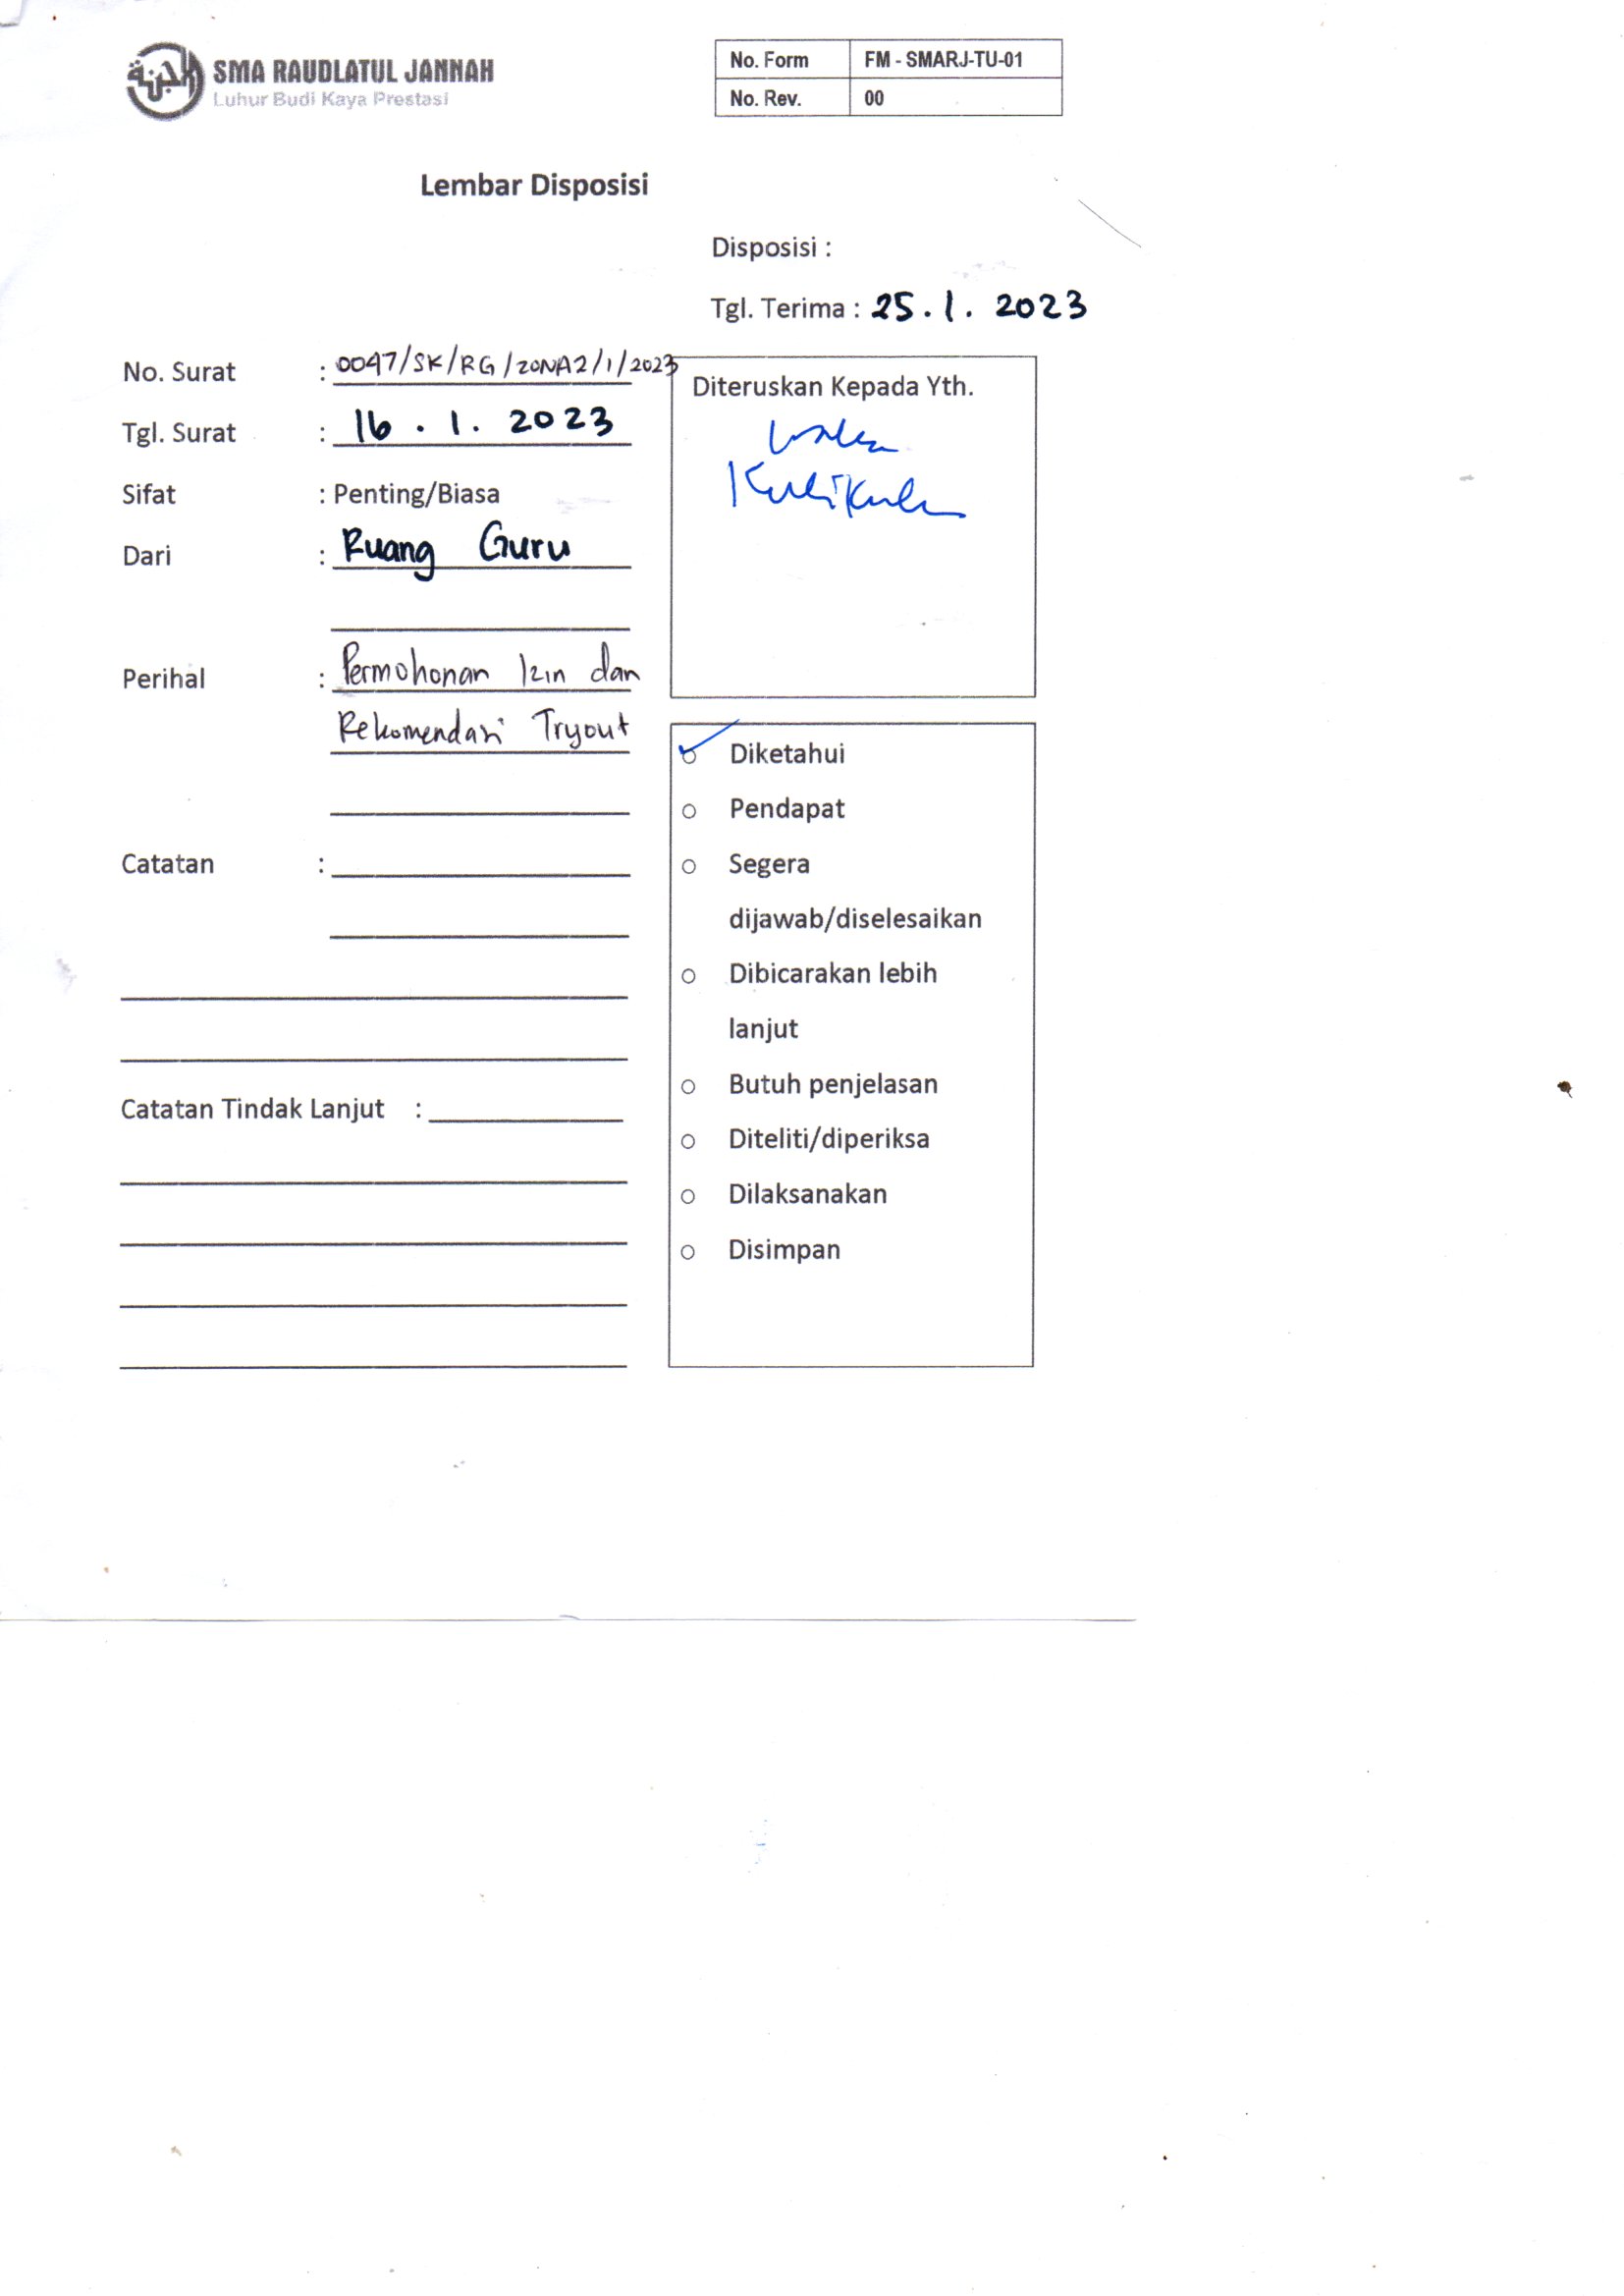 SMA RAUDLATUL JANNAH
Luhur Budi Kaya Prestasi
No. Form FM - SMARJ-TU-01
No. Rev. 00
Lembar Disposisi
Disposisi :
Tgl. Terima : 25.1.2023
No. Surat : 0047/SK/RG/ZONA2/1/2023
Tgl. Surat : 16.1.2023
Sifat : Penting/Biasa
Dari : Ruang Guru
Perihal : Permohonan Izin dan
Rekomendasi Tryout
Catatan :
Catatan Tindak Lanjut :
Diteruskan Kepada Yth.
Diketahui
Pendapat
Segera
dijawab/diselesaikan
Dibicarakan lebih
lanjut
Butuh penjelasan
Diteliti/diperiksa
Dilaksanakan
Disimpan